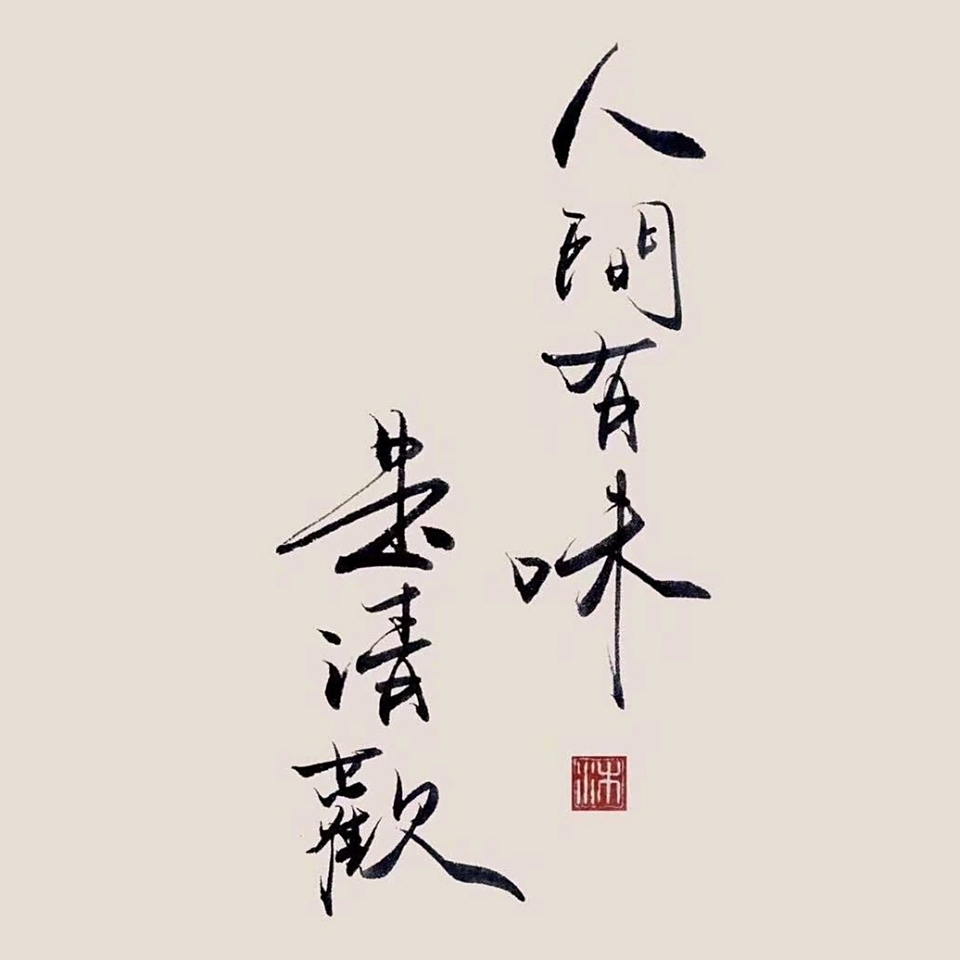 人間有味
是清歡
沐